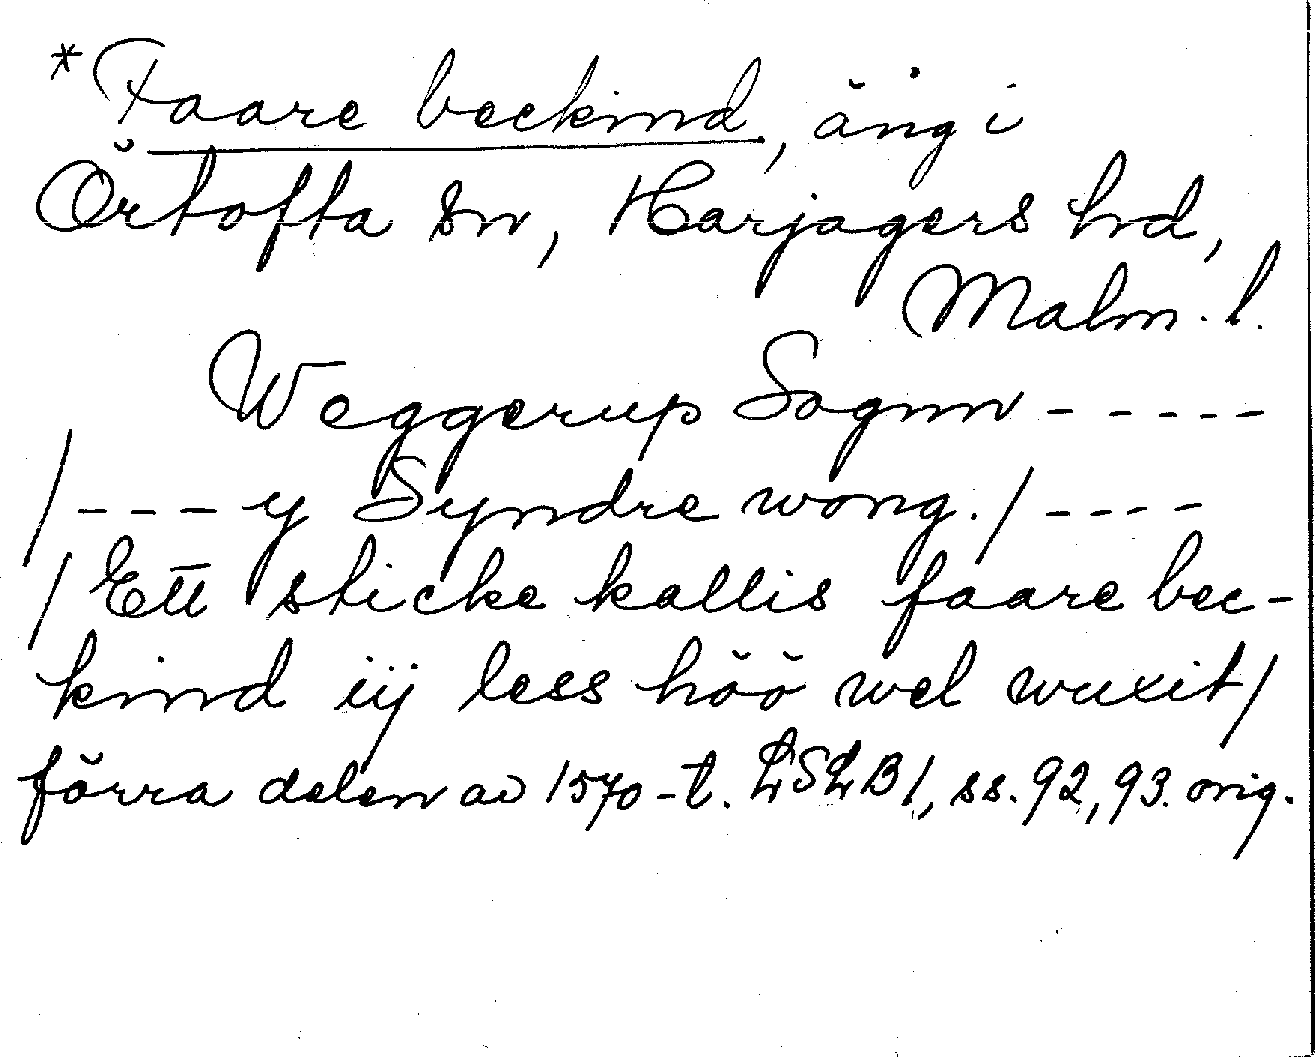 *Faare beckind, äng i
Örtofta sn, Harjagers hd,
Malm. l.
Weggerup Sognn - - - - -
/ - - - y Syndre wong. / - - - -
/ Ett sticke kallis faare bec-
kind iij less höö wel wuxit /
förra delen av 1570-t. LSLB 1, ss. 92, 93. orig.